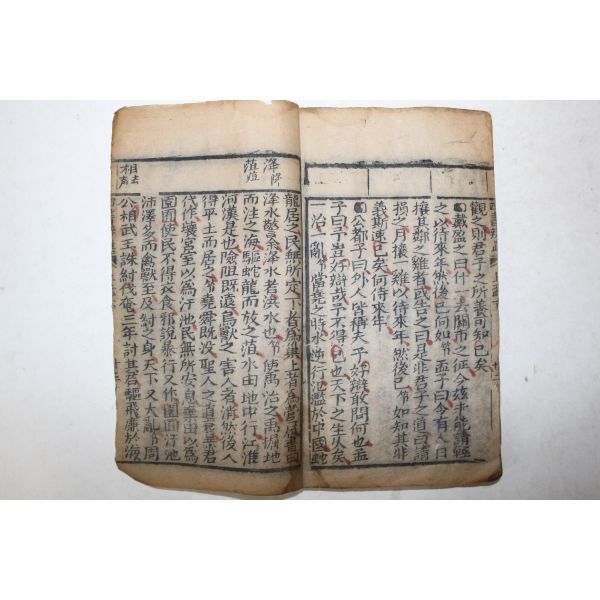 觀之則君子之所養可知已矣
戴盈之曰什一去關市之征今玆未能請輕
之以待來年然後已何如節孟子曰今有人日
攘其鄰之雞者或告之曰是非君子之道曰請
損之月攘一雞以待來年然後已節如知其非
義斯速已矣何待來年
公都子曰外人皆稱夫子好辯敢問何也孟
子曰予豈好辯哉予不得已也天下之生久矣
一治一亂節當堯之時水逆行氾濫於中國蛇
洚降
菹
龍居之民無所定下者爲巢上者爲營窟書曰
洚水警余洚水者洪水也節使禹治之禹掘地
而注之海驅蛇龍而放之菹水由地中行江淮
河漢是也險阻既遠鳥獸之害人者消然後人
得平土而居之節堯舜既沒聖人之道衰暴君
代作壞宮室以爲汙池民無所安息以爲
園囿使民不得衣食邪說暴行又作園囿汙池
沛澤多而禽獸至及紂之身天下又大亂節周
相去聲
公相武王誅紂伐奄三年討其君驅飛廉於海